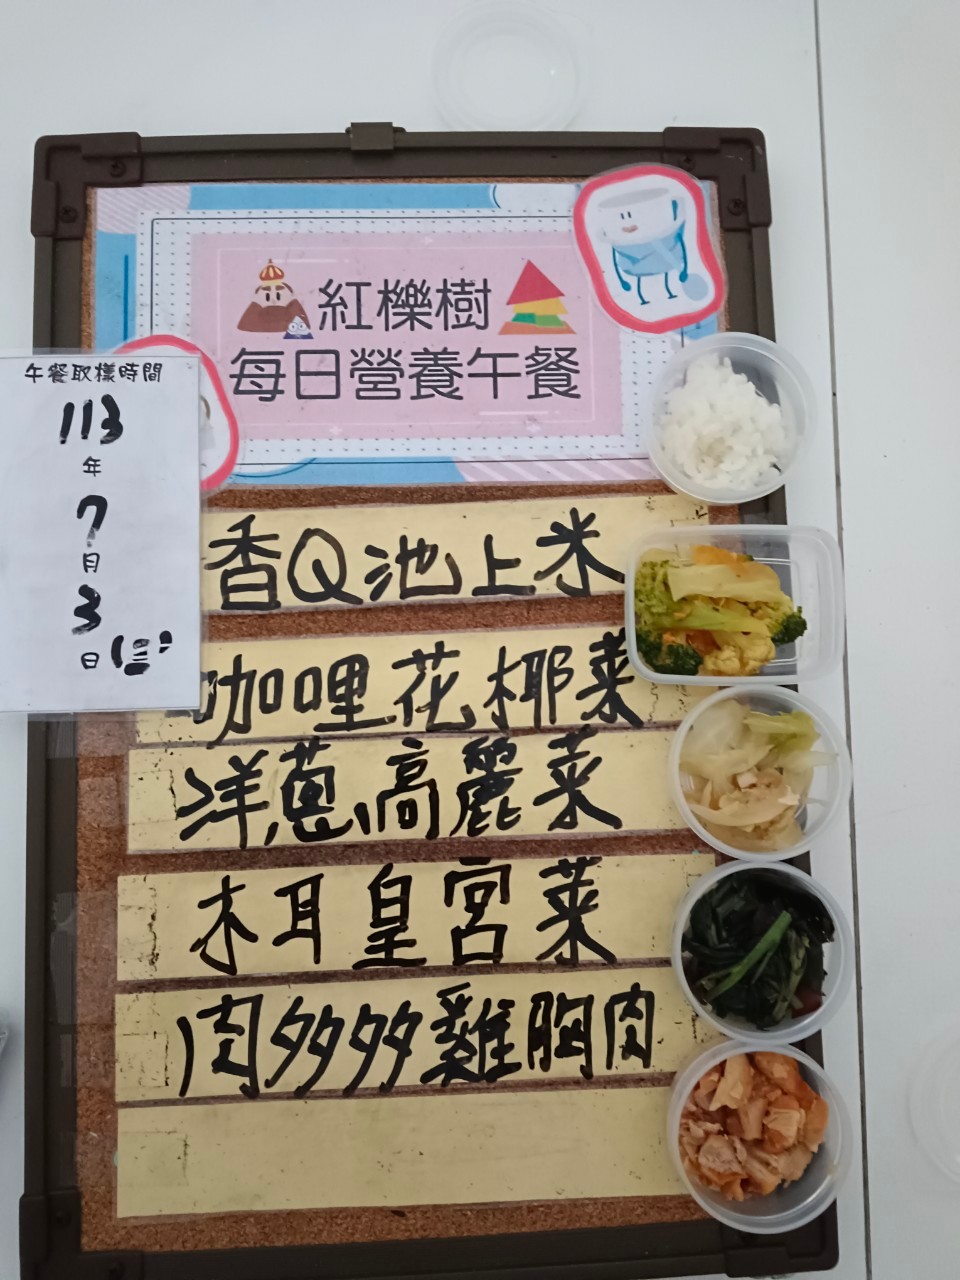 紅櫟樹
每日營養午餐
午餐取樣時間
113
年
7
月
3
日(三)
香Q池上米
咖哩花椰菜
洋蔥高麗菜
木耳皇宮菜
肉多多雞胸肉